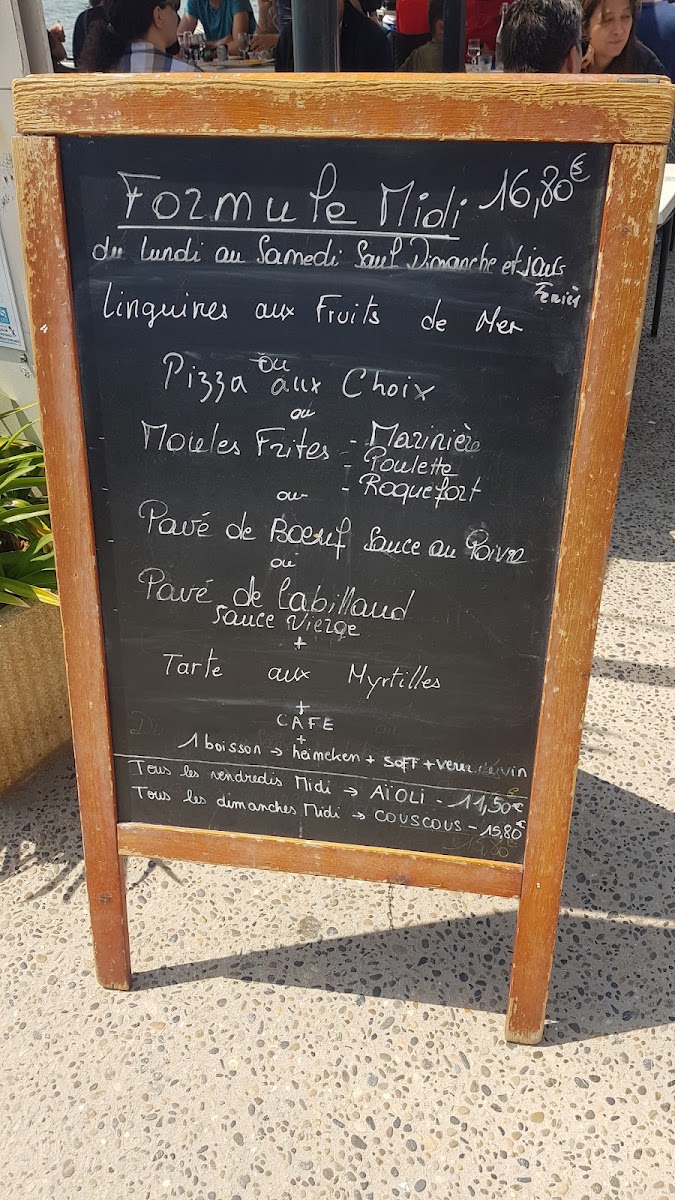 Formule Midi 16,80€
du Lundi au Samedi Sauf Dimanche et jours
Feriés
Linguines aux Fruits de Mer
ou
Pizza aux Choix
ou
Moules Frites - Marinière
- Poulette
- Roquefort
ou
Pavé de Boeuf Sauce au Poivre
ou
Pavé de Cabillaud
Sauce Vierge
+
Tarte aux Myrtilles
+
CAFE
+
1 boisson → heineken + soft + verre de vin
Tous les vendredis Midi → AÏOLI - 11,50€
Tous les dimanches Midi → COUSCOUS - 15,80€